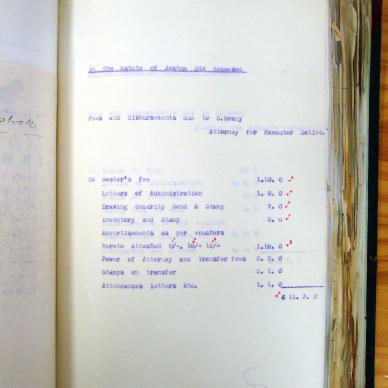 In the Estate of Joshua Dix deceased
Fees and disbursements due to G.
Attorney for Executor Dative.
To Master's fee 1.10. 0
Letters of Administration 1. 0. 0
Drawing Security bond & Stamp 7. 6
Inventory and Stamp 5. 0
Advertisements as per vouchers
hereto attached 1.16. 0
Power of Attorney and Transfer fees 3. 3. 0
Stamps on transfer 2. 1. 0
Attendances letters Etc. 1. 1. 0
£ 11. 3. 0